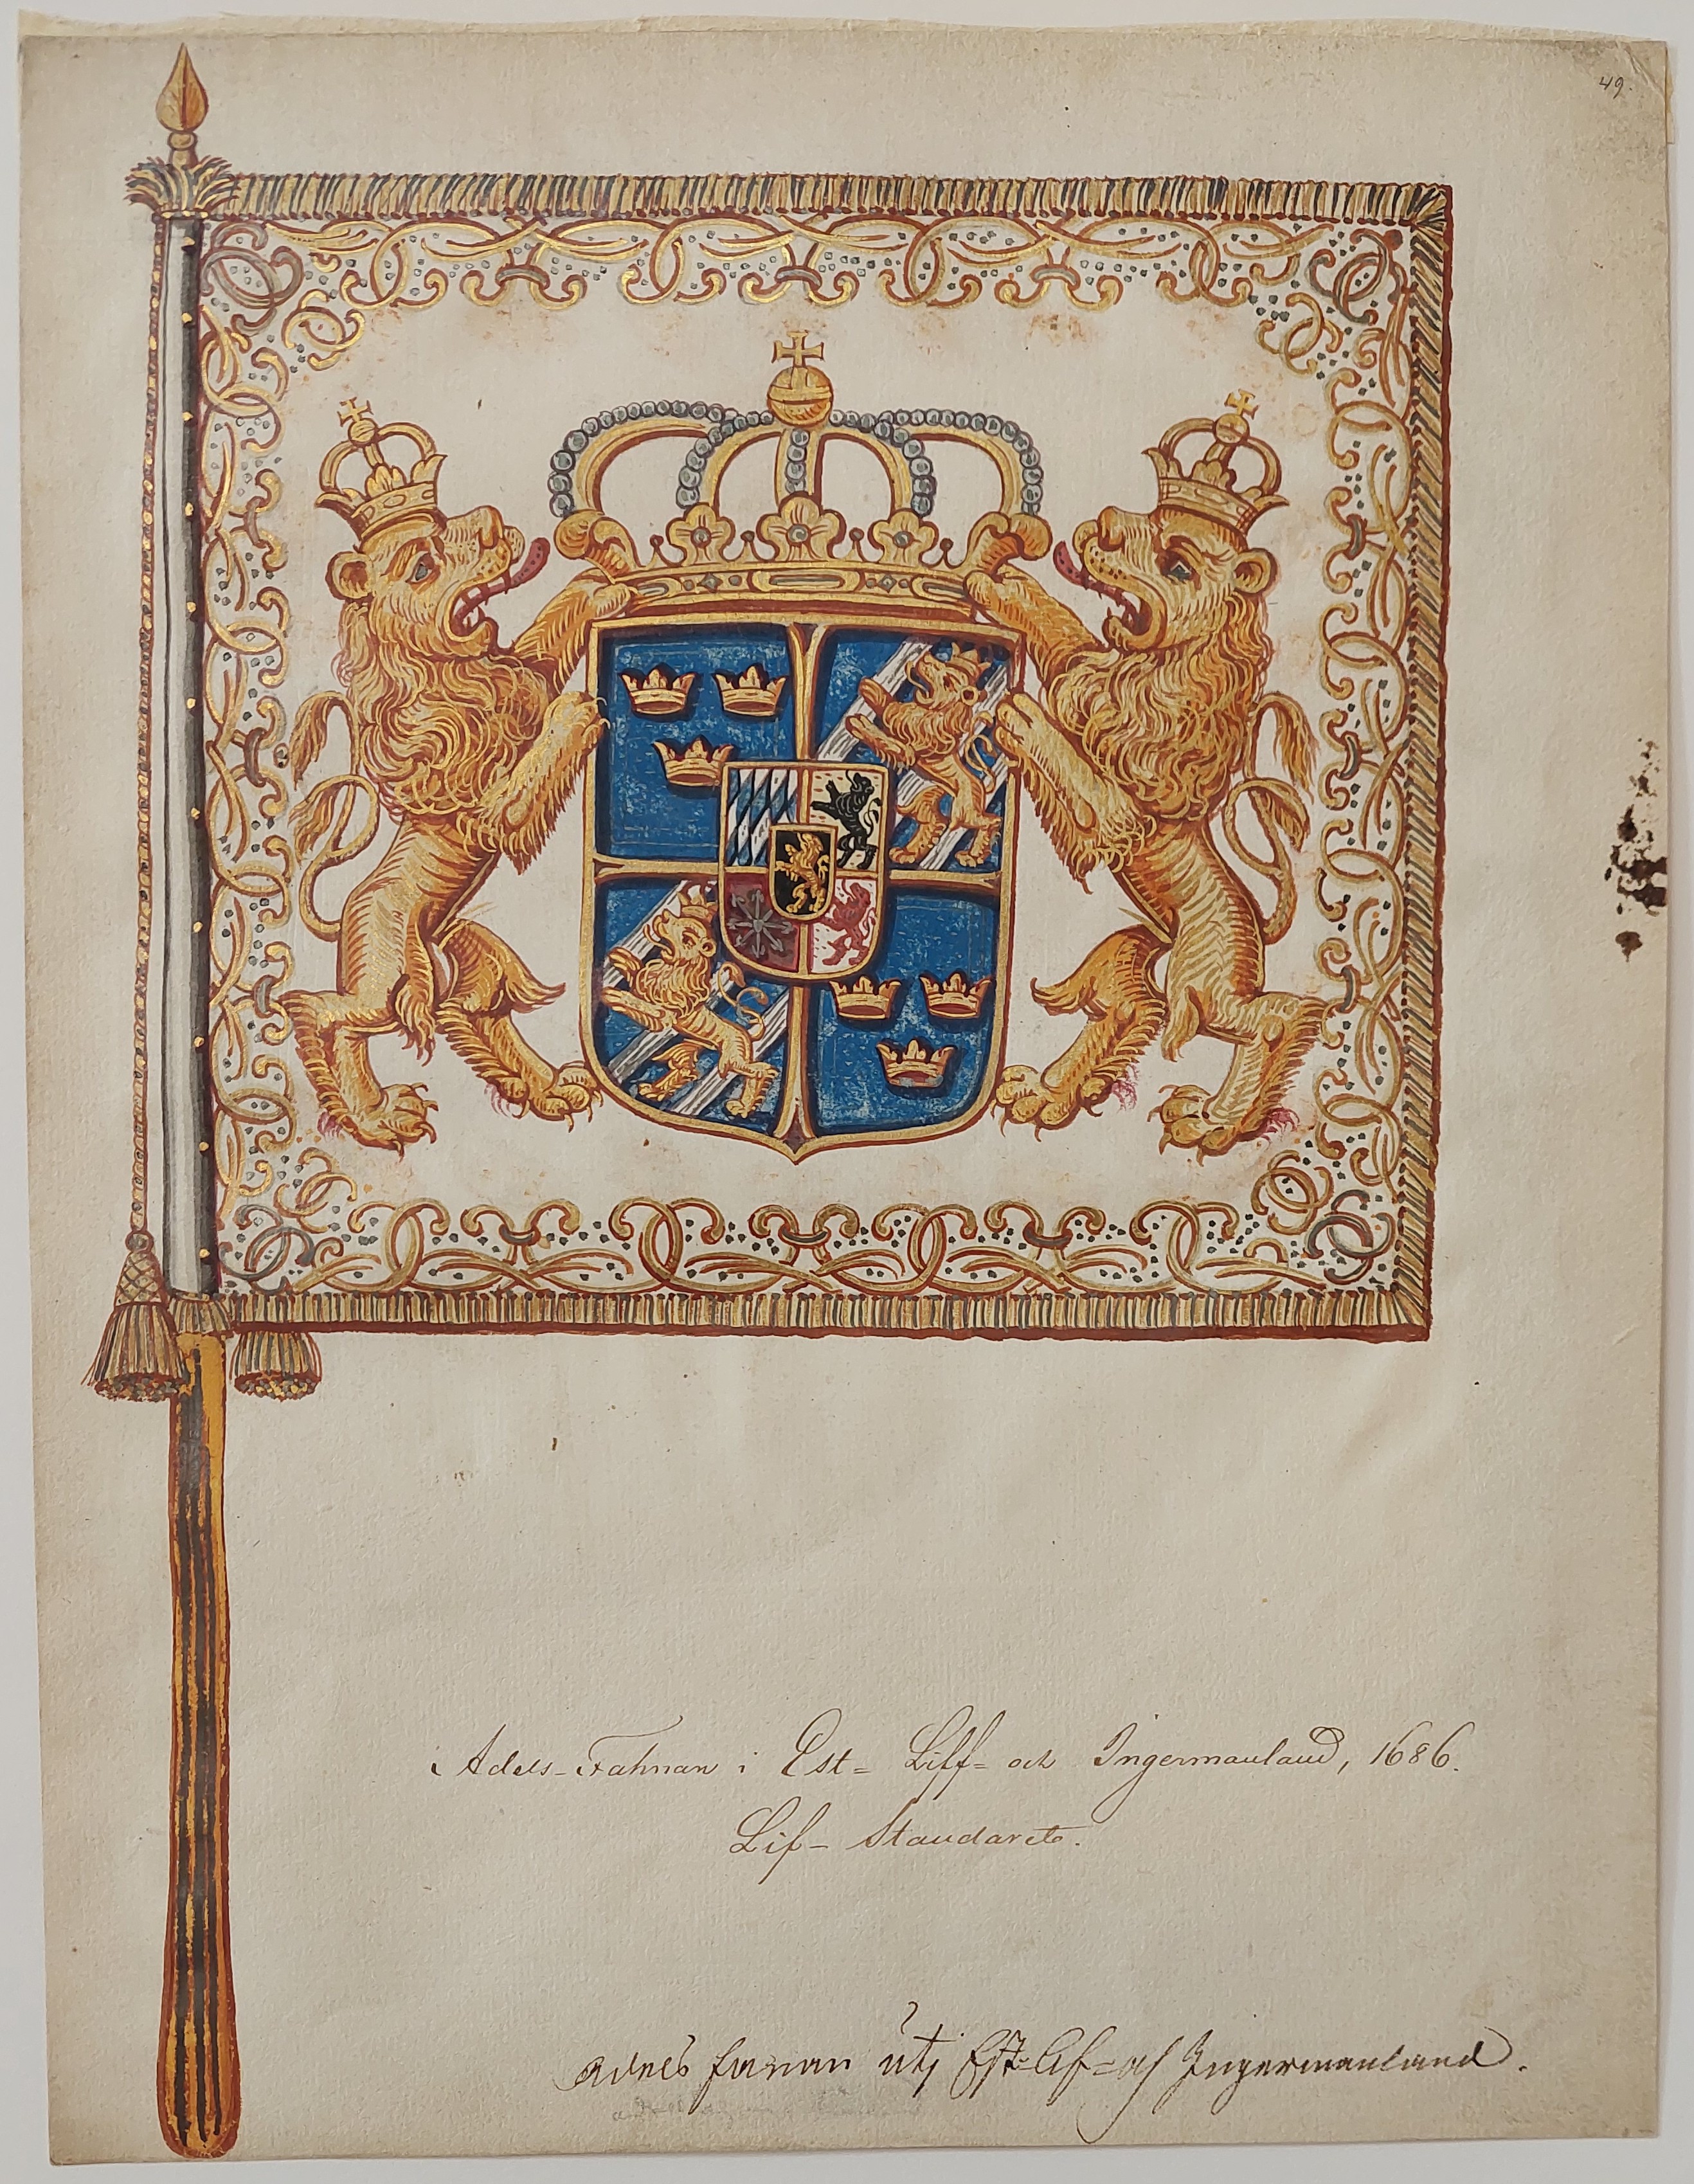 49.
Adels-Fahnan i Est= Liff= och Ingermanland, 1686.
Lif- Standaret.
Adels fanan utj Est= Lif= och Ingermanland.